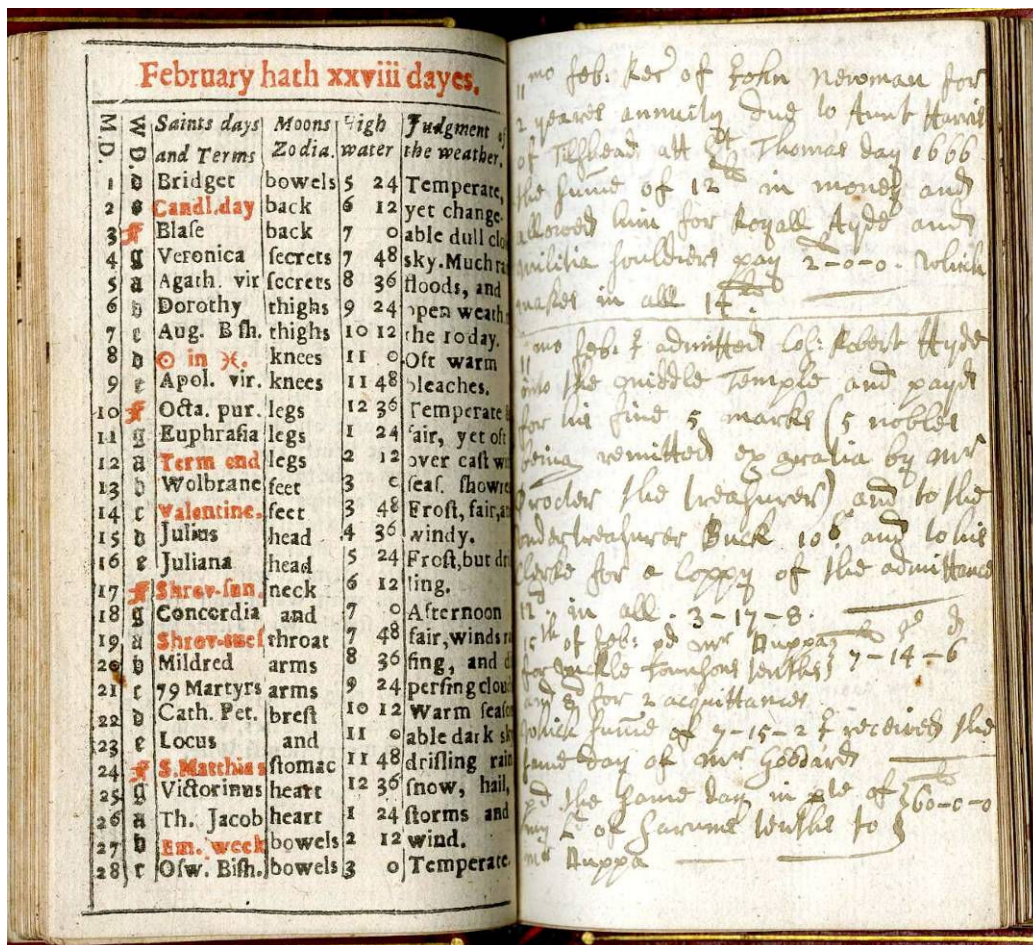 February hath xxviii dayes.
M.D. W.D. Saints days and Terms Moons Zodia. High water Judgment of the weather.
1 d Bridget bowels 5 24 Temperate,
2 e Candl.day back 6 12 yet change-
3 f Blaſe back 7 0 able dull clo
4 g Veronica ſecrets 7 48 ſky.Much ra
5 a Agath. vir ſecrets 8 36 floods, and
6 b Dorothy thighs 9 24 open weath
7 c Aug. Bſh. thighs 10 12 the 10 day.
8 D ☉ in ♓. knees 11 0 Oft warm
9 e Apol. vir. knees 11 48 bleaches.
10 f Octa. pur. legs 12 36 Temperate
11 g Euphraſia legs 1 24 fair, yet oft
12 a Term end legs 2 12 over caſt wi
13 b Wolbrane feet 3 0 ſeaſ. ſhowre
14 c Valentine. feet 3 48 Froſt, fair,an
15 D Julius head 4 36 windy.
16 e Juliana head 5 24 Froſt,but dri
17 f Shrov-ſun. neck 6 12 ling.
18 g Concordia and 7 0 Afternoon
19 a Shrov-tueſ throat 7 48 fair,winds ra
20 b Mildred arms 8 36 ſing, and d
21 c 79 Martyrs arms 9 24 perſing clou
22 D Cath. Pet. breſt 10 12 Warm ſeaſo
23 e Locus and 11 0 able dark sk
24 f S.Matthias ſtomac 11 48 driſling rain
25 g Victorinus heart 12 36 ſnow, hail,
26 a Th. Jacob heart 1 24 ſtorms and
27 b Em. week bowels 2 12 wind.
28 c Oſw. Biſh. bowels 3 0 Temperate.
11 mo feb: Rec of John Newman for
2 yeares annuity due to Aunt Harris
of Tilshead att St Thomas day 1666
the sume of 12li in money and
allowed him for Royall Ayde and
militia souldiers pay 2-0-0. which
makes in all 14li.
11 mo feb: I admitted Coz: Robert Hyde
into the middle Temple and payd
for his fine 5 markes (5 nobles
being remitted ex gratia by mr
Procter the treasurer) and to the
undertreasurer Buck 10s and to his
Clerke for a Coppy of the admittance
12d. in all. 3-17-8.
15th of feb: pd mr Duppa
for tenthes 7-14-6
and 8d for 2 acquittances
which sume of 7-15-2 I received the
same day of mr Goddard
pd the same day in pte of 60-0-0
my of Sarums tenthes to
mr Duppa